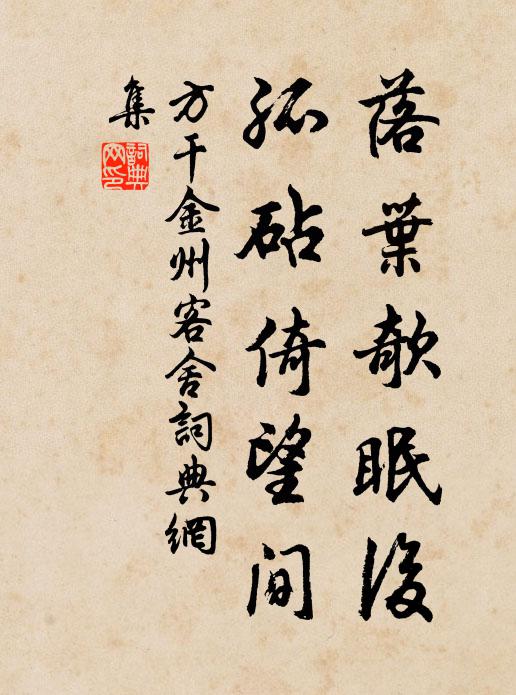 落葉欹眠後
孤砧倚望間
方干金州客舍詞典網
集
詞典
網印